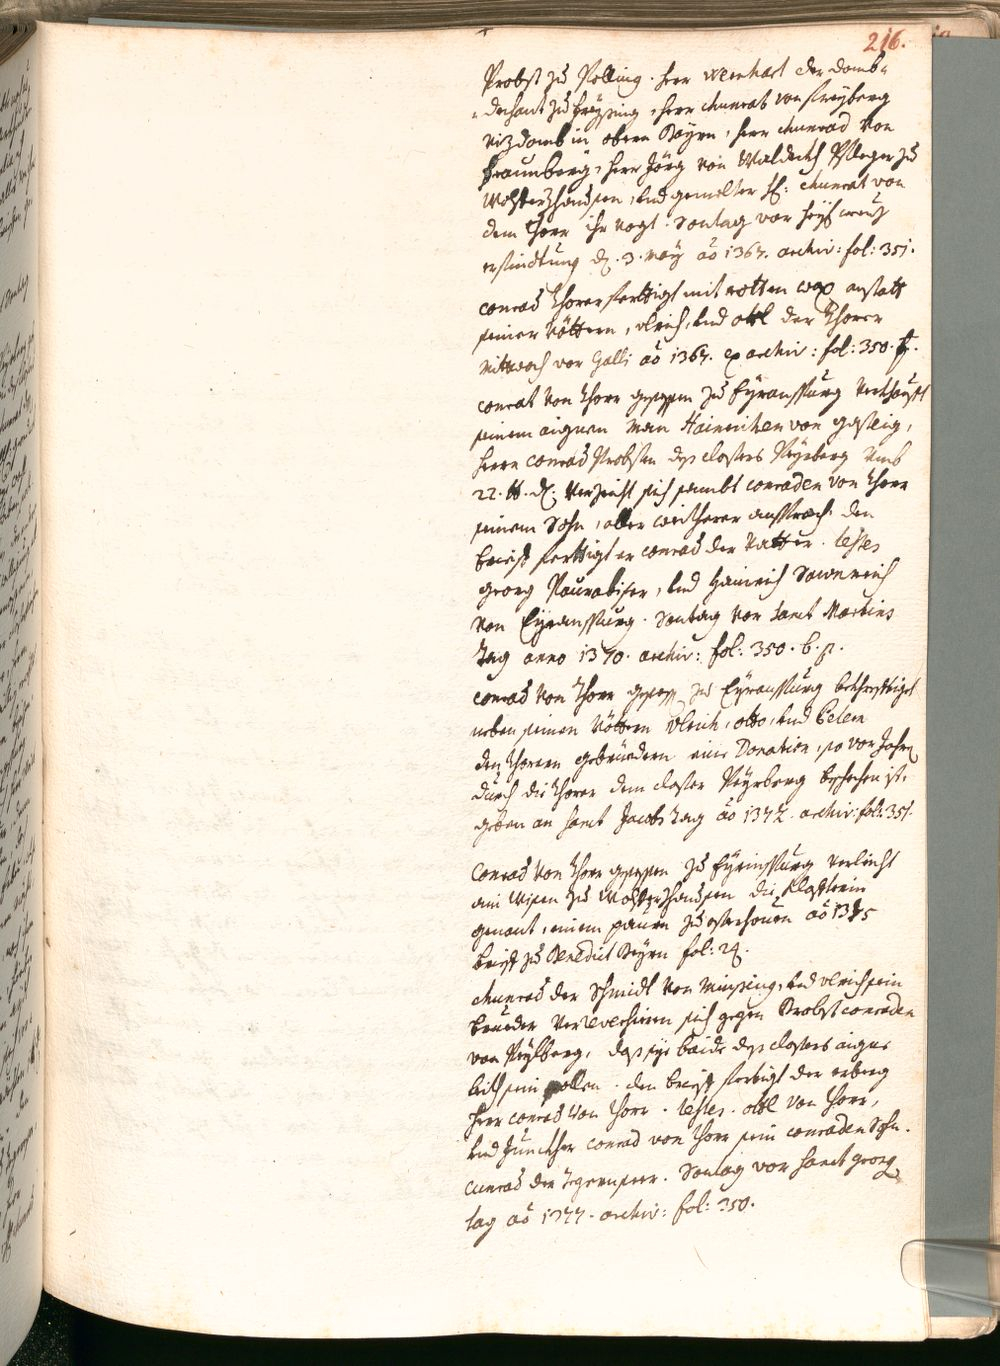 216.
Probst zu Polling. herr Wernhart der domb-
-dechant zu freysing, herr chunrat von freyberg
vizdomb in obern Bayrn, herr chunrad von
fraunberg, herr Jörg von Waldeckh Pfleger zu
Wolfertzhausen, und gemelter H: chunrat von
dem Thorr ihr Vogt. Sontag vor heyl creuz
erfindtung d. 3. may aō 1367. archiv: fol: 351.
conrad Thorer ferttigt mit rotten wax anstatt
seiner Vöttern, Ulrich, und ottl der Thorer
Mittwoch vor Galli aō 1367. ex archiv: fol: 350.
conrat von Thorr gesessen zu Eyraspurg verkhaufft
seinem aignen Man Hainrichen von gasteig,
herrn conrad Probsten dess closters Peyrberg umb
22. lb. d. Verzeicht sich sambt conraden von Thorr
seinem Sohn, aller weitherer ansprach. den
brieff ferttigt er conrad der Vatter. testes
georg, und Hainrich
von Eyraspurg. Sontag vor Sanct Martins
tag anno 1370. archiv: fol: 350. b. p.
conrad von Thorr gesess. zu Eyraspurg bekhrefftiget
neben seinen Vöttern Ulrich, otto, und
den Thorern gebrüedern eine Donation, so vor Jahrn
durch die Thorer dem closter Peyrberg beschechen ist.
geben an Sanct Jacobs tag aō 1372. archiv: fol: 351.
Conrad von Thorr gesessen zu Eyrinspurg verleicht
ain Wisen zu Wolfertzhausen die
genant, einem paurn zu osterhouen aō 1375
brieff zu Benedict Beyrn fol: 24.
chunrad der Schmidt von Münsing, und Ulrich sein
brueder Verreversiren sich gegen Probst conraden
von Peyrberg, dass sye baide dess closters aigne
leith sein sollen. den brieff fertigt der erberg
herr conrad von Thorr. testes. ottl von Thorr,
und Junckher conrad von Thorr sein conraden Sohn.
cunrad der Tegernseer. Sontag vor Sanct georg
tag aō 1377. archiv: fol: 350.